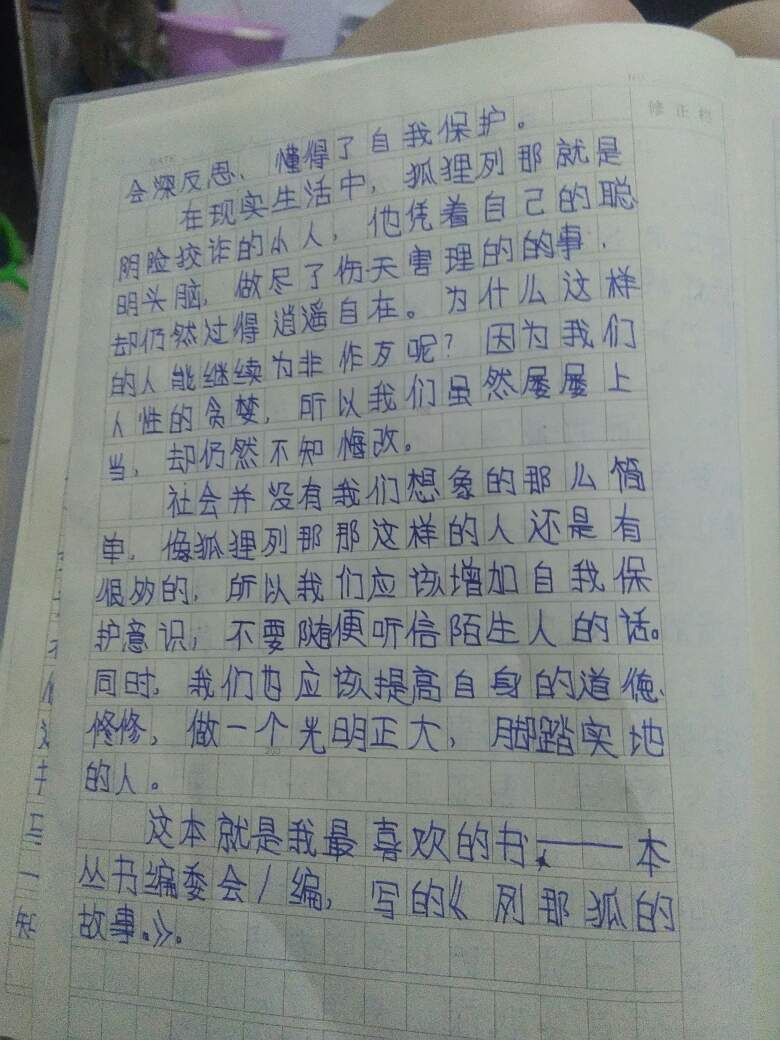 会深反思、懂得了自我保护。
在现实生活中，狐狸列那就是
阴险狡诈的小人，他凭着自己的聪
明头脑，做尽了伤天害理的的事，
却仍然过得逍遥自在。为什么这样
的人能继续为非作歹呢？因为我们
人性的贪婪，所以我们虽然屡屡上
当，却仍然不知悔改。
社会并没有我们想象的那么简
单，像狐狸列那那这样的人还是有
很多的，所以我们应该增加自我保
护意识，不要随便听信陌生人的话。
同时，我们也应该提高自身的道德
修修，做一个光明正大，脚踏实地
的人。
这本就是我最喜欢的书——本
丛书编委会/编，写的《列那狐的
故事》。